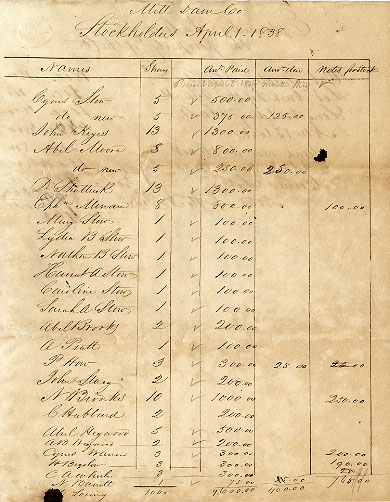 Mill Dam Co
Stockholders April 1. 1838
Names Shares Amt. Paid Amt. Due Notes
Cyrus Stow 5 500.00
do new 5 375.00 125.00
John Keyes 13 1300.00
Abel Moore 8 800.00
do new 5 250.00 250.00
D. Shattuck 13 1300.00
Ephm Merriam 8 800.00 100.00
Mercy Stow 1 100.00
Lydia B Stow 1 100.00
Nathan B Stow 1 100.00
Harriet A Stow 1 100.00
Caroline Stow 1 100.00
Sarah A Stow 1 100.00
Abel Brooks 2 200.00
A Pratt 1 100.00
P How 3 300.00 25.00
John Stacy 2 200.00
N Brooks 10 1000.00 250.00
C Hubbard 2 200.00
Abel Heywood 5 500.00
2 200.00
Cyrus Warren 3 300.00 200.00
3 300.00 190.00
3 300.00
75.00
400.00